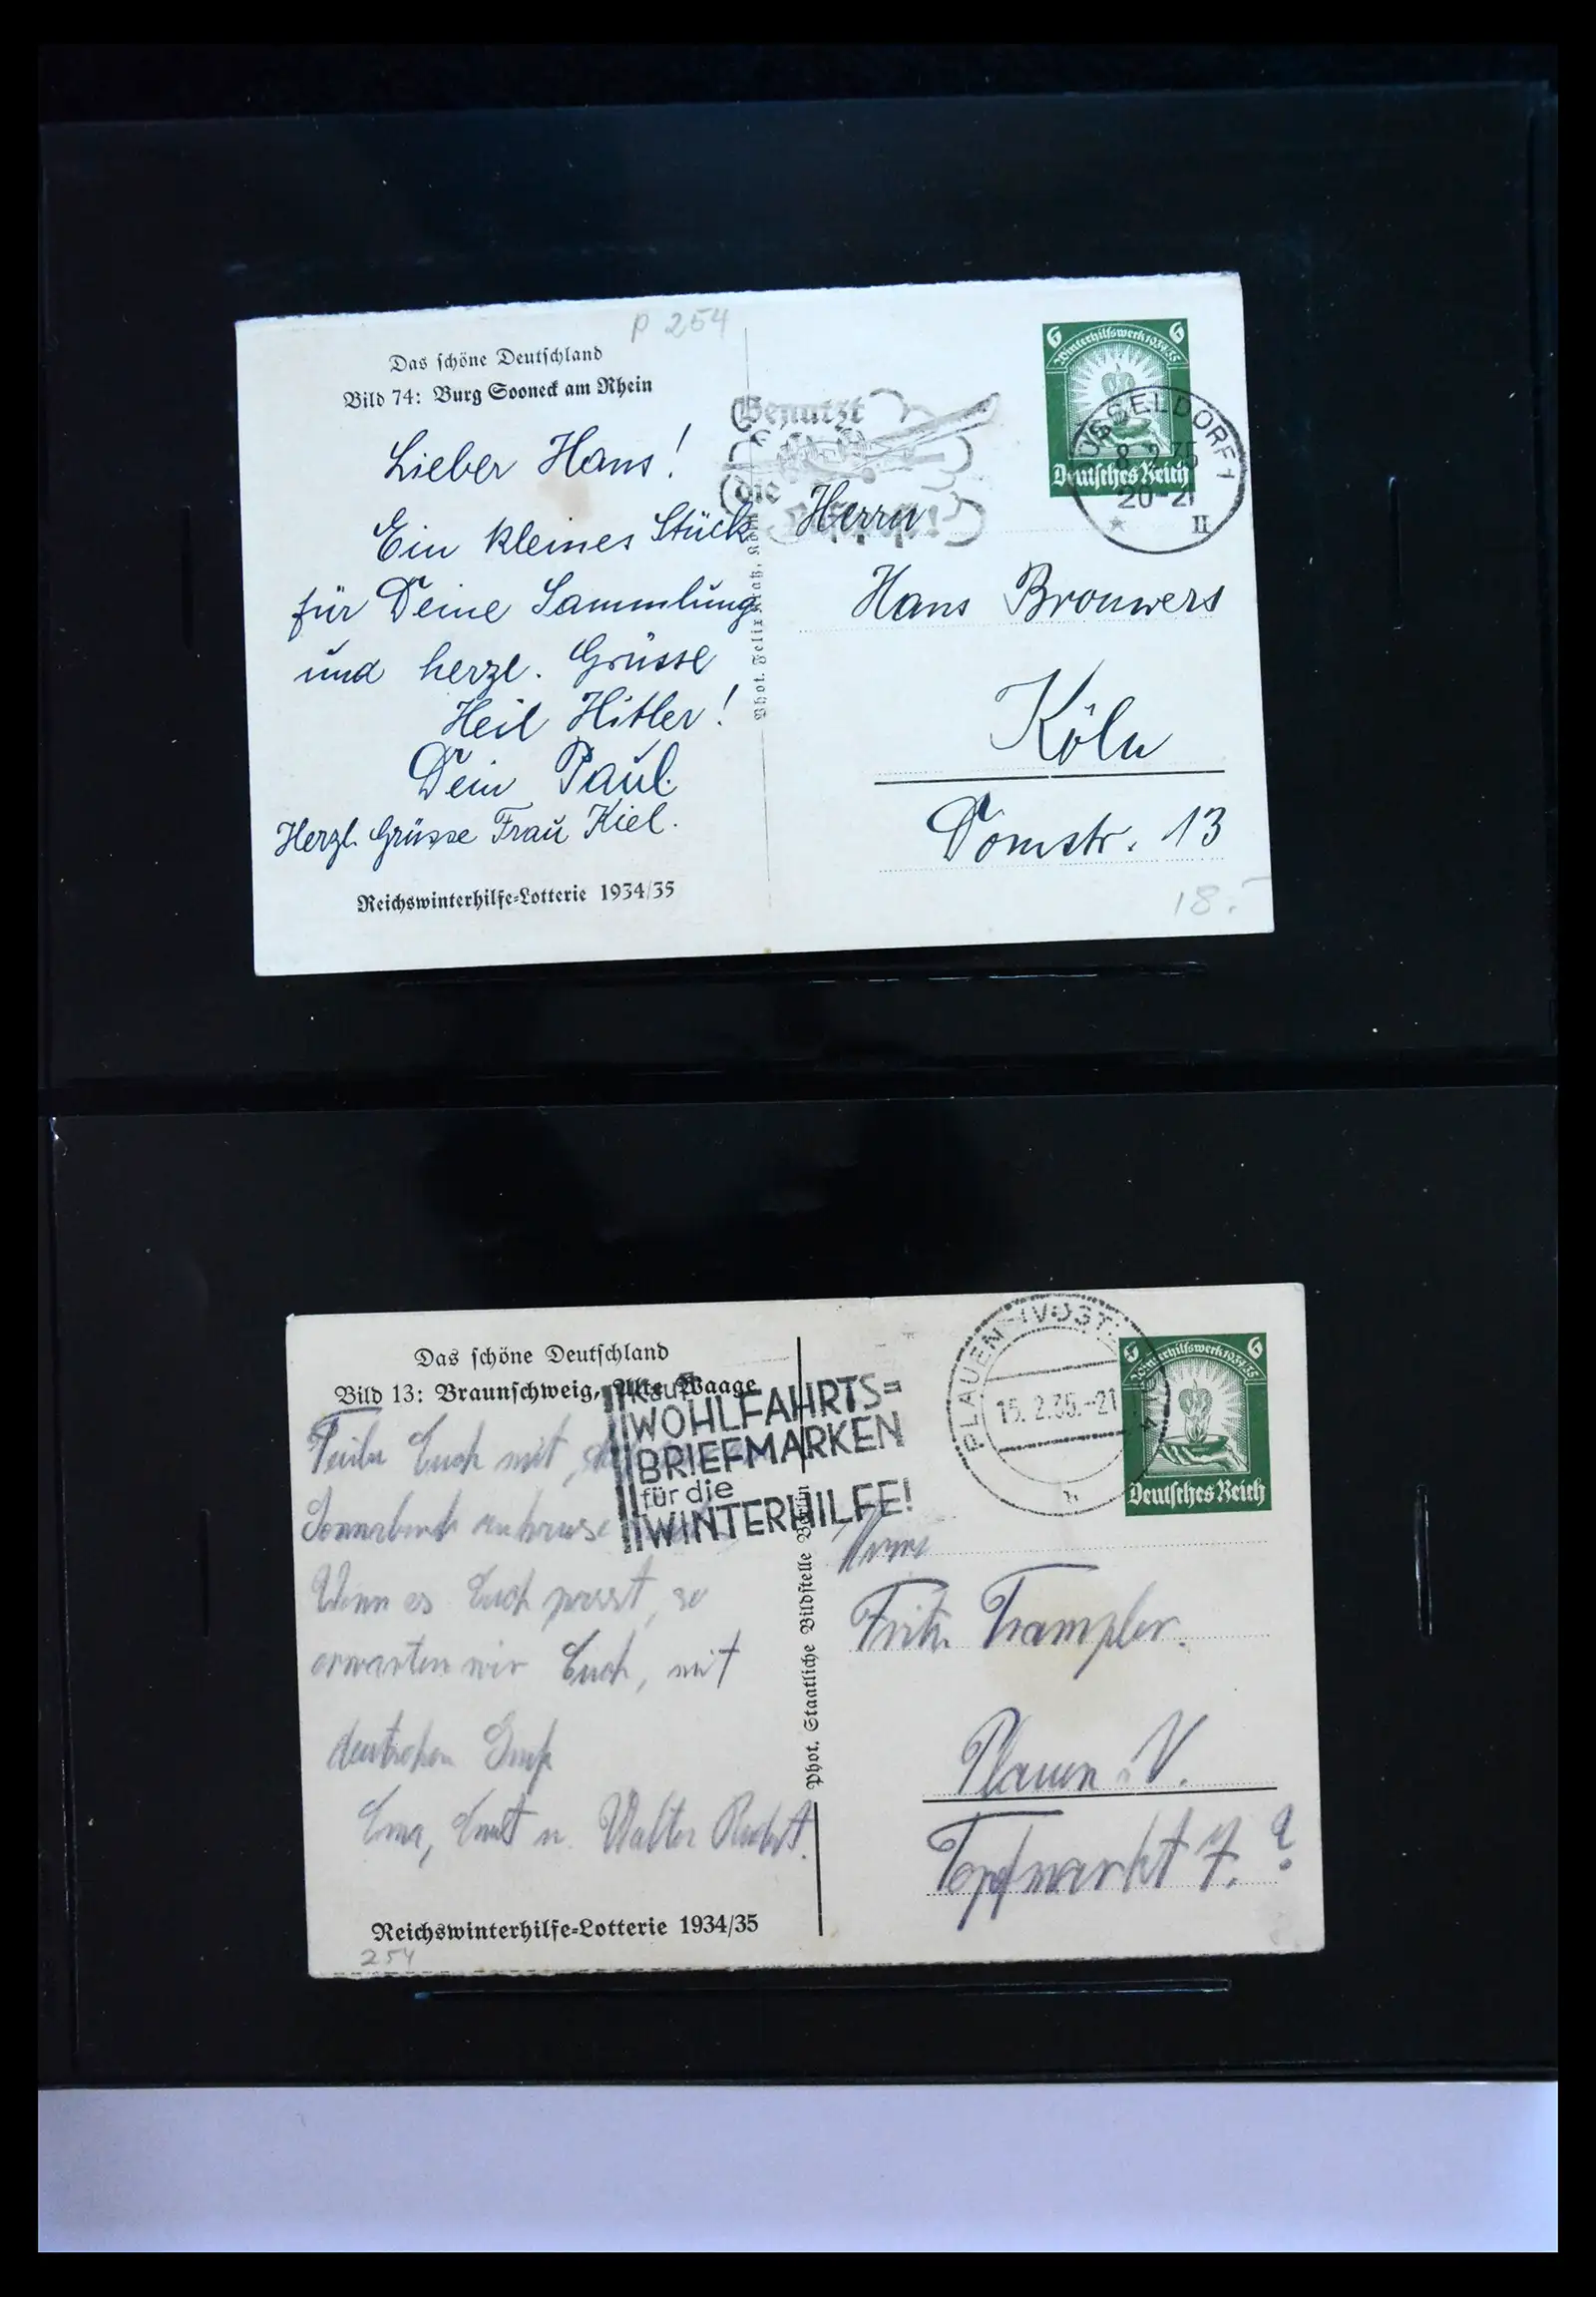 P 254
Das schöne Deutschland
Bild 74: Burg Sooneck am Rhein
Lieber Hans!
Ein kleines Stück
für Deine Sammlung
und herzl. Grüsse
Heil Hitler!
Dein Paul.
Herzl. Grüsse Frau Kiel.
Reichswinterhilfe=Lotterie 1934/35
Phot. Felix
Benutzt
die
6 6
Winterhilfswerk 1934/35
Deutsches Reich
DÜSSELDORF 1
8. 2. 35
20-21
II
Herrn
Hans Brouwers
Köln
Domstr. 13
18.-
Das schöne Deutschland
Bild 13: Braunschweig, Alte Waage
Teile Euch mit,
Sonnabend zuhause
Wenn es Euch passt, so
erwarten wir Euch, mit
deutschem Gruß
Ernst u. Walter
Reichswinterhilfe=Lotterie 1934/35
254
Phot. Staatliche Bildstelle Berlin
Kauft
WOHLFAHRTS=
BRIEFMARKEN
für die
WINTERHILFE!
PLAUEN (VOGTL)
15. 2. 35.-21
h
6 6
Winterhilfswerk 1934/35
Deutsches Reich
Herrn
Fritz Trampler.
Plauen V.
Topfmarkt 7. ?